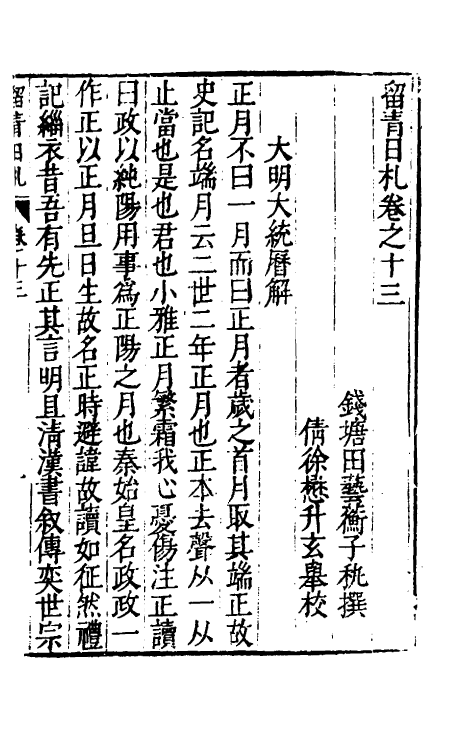 留青日札卷之十三
錢塘田藝蘅子秇撰
倩徐懋升玄舉校
大明大統曆解
正月不曰一月而曰正月者歲之首月取其端正故
史記名端月云二世二年正月也正本去聲从一从
止當也是也君也小雅正月繁霜我心憂傷注正讀
曰政以純陽用事爲正陽之月也秦始皇名政政一
作正以正月旦日生故名正時避諱故讀如征然禮
記緇衣昔吾有先正其言明且淸漢書敘傳奕世宗
留青日札 卷十三